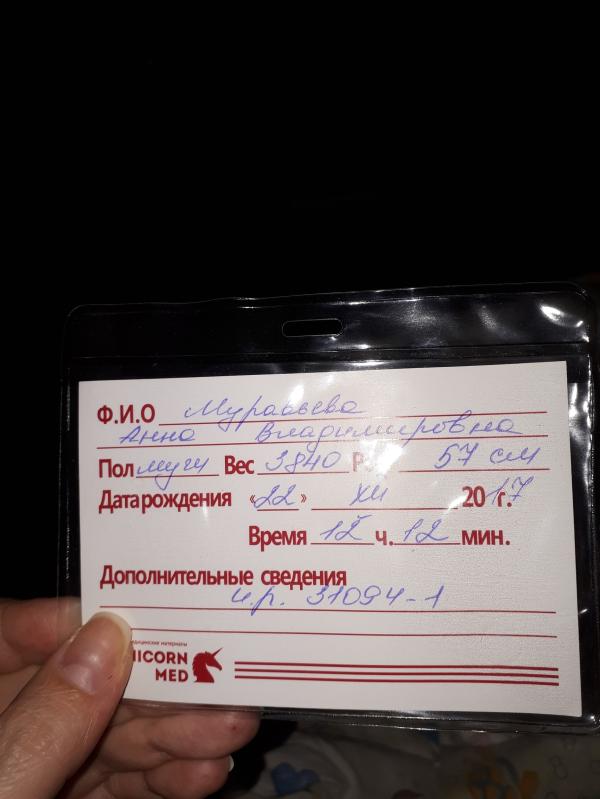 Ф.И.О Муравьева
Анна Владимировна
Пол муж Вес 3840 Р 57 см
Дата рождения «22» XII 2017г.
Время 12 ч. 12 мин.
Дополнительные сведения
и.р. 31094-1
медицинские материалы
NICORN
MED